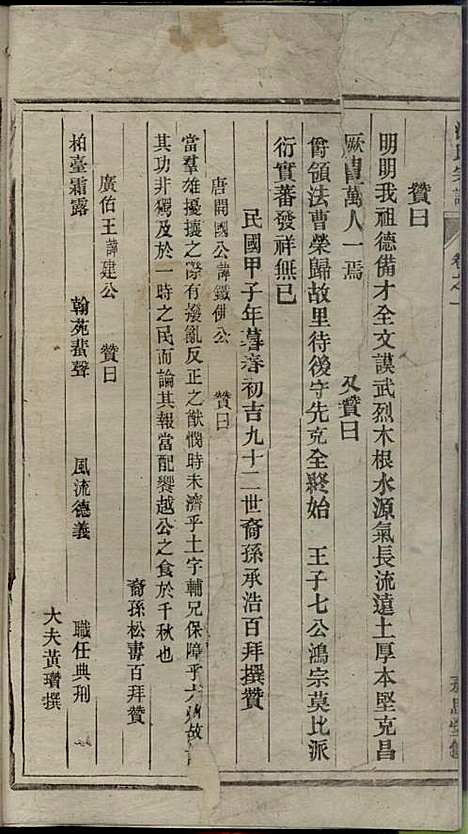 贊曰
明明我祖德備才全文謨武烈木根水源氣長流遠土厚本堅克昌
厥冑萬人一焉　又贊曰
爵領法曹榮歸故里待後守先克全終始　王子七公鴻宗莫比派
衍實蕃發祥無已
民國甲子年暮春初吉九十二世裔孫承浩百拜撰贊
唐開國公諱鐵佛公　贊曰
當羣雄擾攘之際有撥亂反正之猷憫時未濟乎土宇輔兄保障乎六州故
其功非獨及於一時之民而論其報當配饗越公之食於千秋也
裔孫松壽百拜贊
廣伯王諱建公　贊曰
柏臺霜露　翰苑蜚聲　風流德義　職任典刑
大夫黃瓚撰
氏宗譜
卷之一